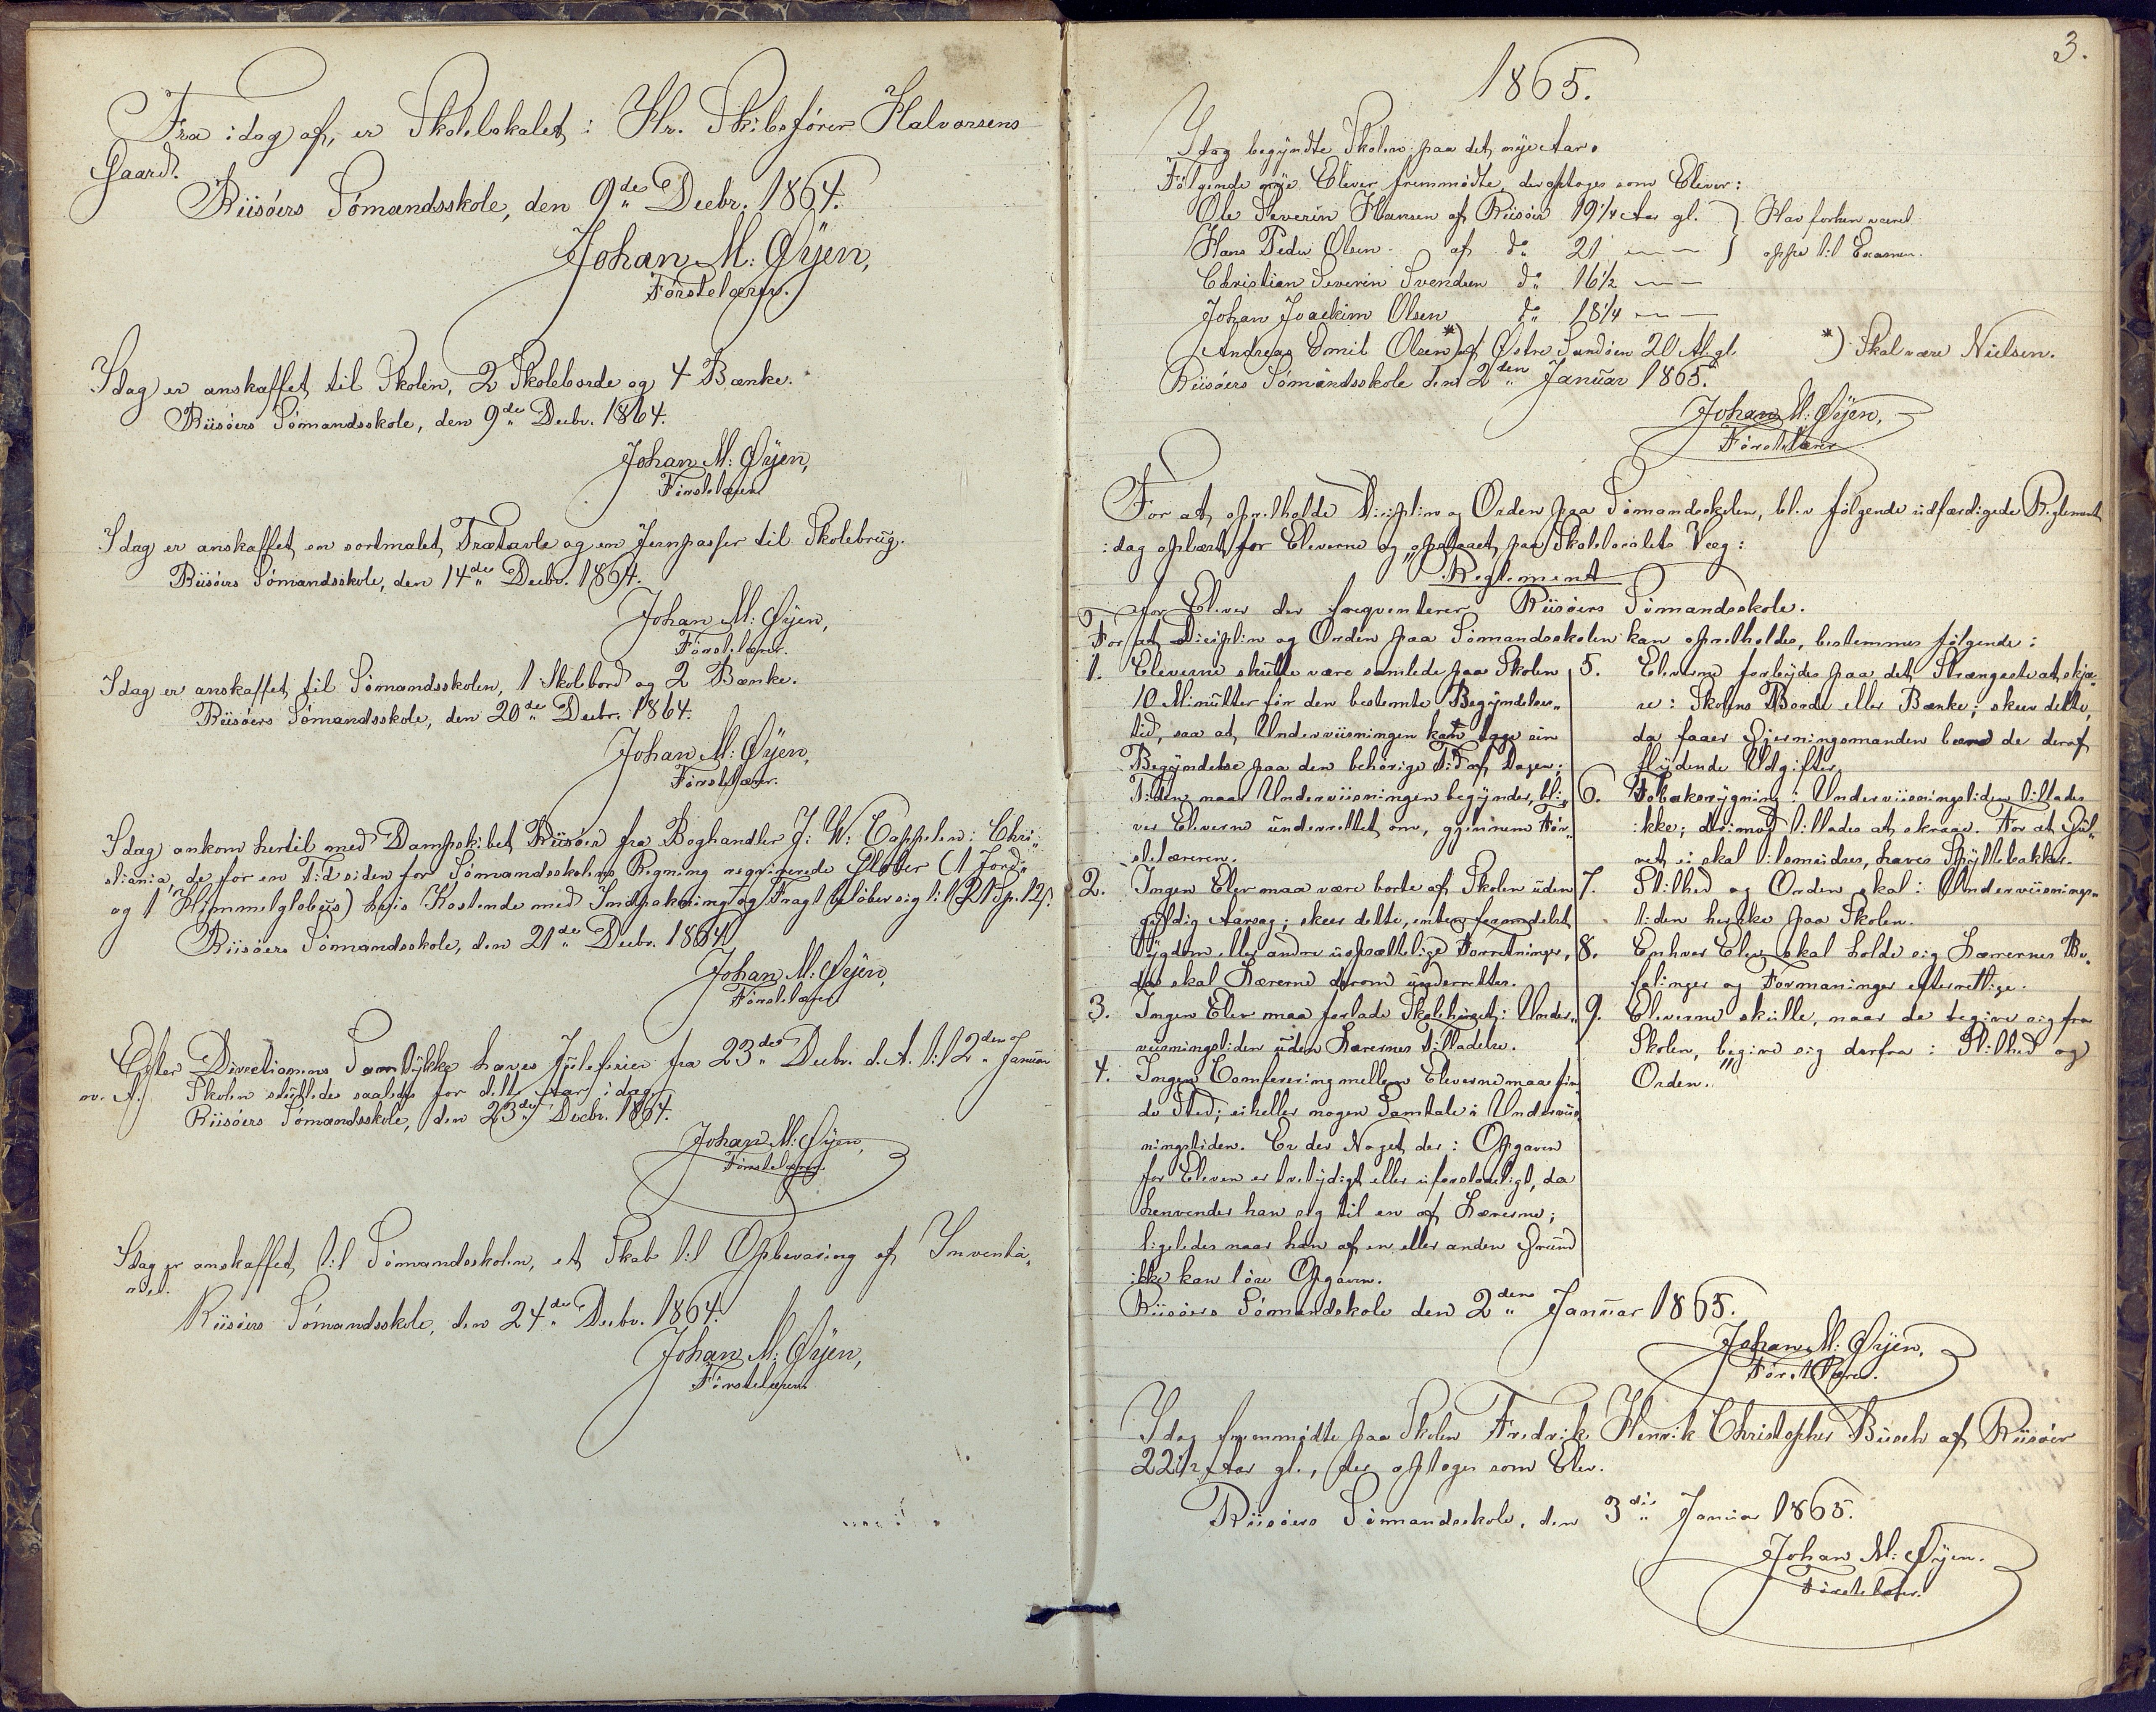 Fra idag af, er Skolelokalet i Hr. Skibsfører Halvorsens
Gaard.
Riisøers Sømandsskole, den 9de Decbr. 1864.
Johan M: Øyen,
Førstelærer.
Idag er anskaffet til Skolen, 2 Skoleborde og 4 Bænke.
Riisøers Sømandsskole, den 9de Decbr. 1864.
Johan M: Øyen,
Førstelærer
Idag er anskaffet en sortmalet Trætavle og en Jernpasser til Skolebrug.
Riisøers Sømandsskole, den 14de Decbr. 1864.
Johan M: Øyen,
Førstelærer.
Idag er anskaffet til Sømandsskolen, 1 Skolebord og 2 Bænke.
Riisøers Sømandsskole, den 20de Decbr. 1864.
Johan M: Øyen,
Førstelærer.
Idag ankom hertil med Dampskibet Riisøer fra Boghandler J: W: Cappelen i Chri„
stiania, de for en Tid siden for Sømandsskolens Regning reqvirerede Glober (1 Jord„
og 1 Himmelglobus) hvis Kostende med Indpakning og Fragt beløber sig til 21 Sp. 12 s.
Riisøers Sømandsskole, den 21de Decbr. 1864.
Johan M: Øyen,
Førstelærer
Efter Directionens Samtykke haves Juleferier fra 23de Decbr. d. A. til 2den Januar
n. A. Skolen sluttedes saaledes for dette Aar idag.
Riisøers Sømandsskole, den 23de Decbr. 1864.
Johan M: Øyen,
Førstelærer.
Idag er anskaffet til Sømandsskolen, et Skab til Opbevaring af Inventa„
riet.
Riisøers Sømandsskole, den 24de Decbr. 1864.
Johan M: Øyen,
Førstelærer.
3.
1865.
Idag begyndte Skolen paa det nye Aar.
Følgende nye Elever fremmødte, der optoges som Elever:
Ole Severin Hansen af Riisøer 19 1/4 Aar gl. } Har forhen været
Hans Peder Olsen af do 21 — — } oppe til Examen.
Christian Severin Svendsen do 16 1/2 — —
Johan Joackim Olsen do 18 1/4 — —
Andreas Emil Olsen *) af Østre Sandøen 20 A. gl. *) Skal være Nielsen.
Riisøers Sømandsskole den 2den Januar 1865.
Johan M: Øyen,
Førstelærer
For at opretholde Disciplin og Orden paa Sømandsskolen, blev følgende udfærdigede Reglement
idag oplæst for Eleverne og opslaaet paa Skolelocalets Væg:
Reglement
for Elever der freqventerer Riisøers Sømandsskole.
For at Disciplin og Orden paa Sømandsskolen kan opretholdes, bestemmes følgende:
1. Eleverne skulle være samlede paa Skolen
10 Minutter før den bestemte Begyndelses„
tid, saa at Underviisningen kan tage sin
Begyndelse paa den behørige Tid af Dagen;
Tiden naar Underviisningen begynder, bli„
ver Eleverne underrettet om, gjennem Før„
stelæreren.
2. Ingen Elev maa være borte af Skolen uden
gyldig Aarsag; skeer dette, enten formedelst
Sygdom eller andre uopsættelige Forretninger,
da skal Lærerne derom underrettes.
3. Ingen Elev maa forlade Skolehuset i Under„
viisningstiden uden Lærernes Tilladelse.
4. Ingen Comferering mellem Eleverne maa fin„
de Sted; eiheller nogen Samtale i Underviis„
ningstiden. Er der Noget der i Opgaven
for Eleven er tvetydigt eller uforstaaeligt, da
henvender han sig til en af Lærerne;
ligeledes naar han af en eller anden Grund
ikke kan løse Opgaven.
5. Eleverne forbydes paa det Strængeste at skjæ„
re i Skolens Borde eller Bænke; skeer dette,
da faaer Gjerningsmanden bære de deraf
flydende Udgifter.
6. Tobaksrygning i Underviisningstiden tillades
ikke; derimod tillades at skraae. For at Gul„
vet ei skal tilsmudses, haves Spyttebakker.
7. Stilhed og Orden skal i Underviisnings„
tiden herske paa Skolen.
8. Enhver Elev skal holde sig Lærernes Be„
falinger og Formaninger efterrettlige.
9. Eleverne skulle, naar de begive sig fra
Skolen, begive sig derfra i Stilhed og
Orden.
Riisøers Sømandsskole den 2den Januar 1865.
Johan M: Øyen,
Førstelærer.
Idag fremmødte paa Skolen Fredrik Henrik Christopher Busch af Riisøer
22 1/2 Aar gl., der optoges som Elev.
Riisøers Sømandsskole, den 3die Januar 1865.
Johan M: Øyen.
Førstelærer.